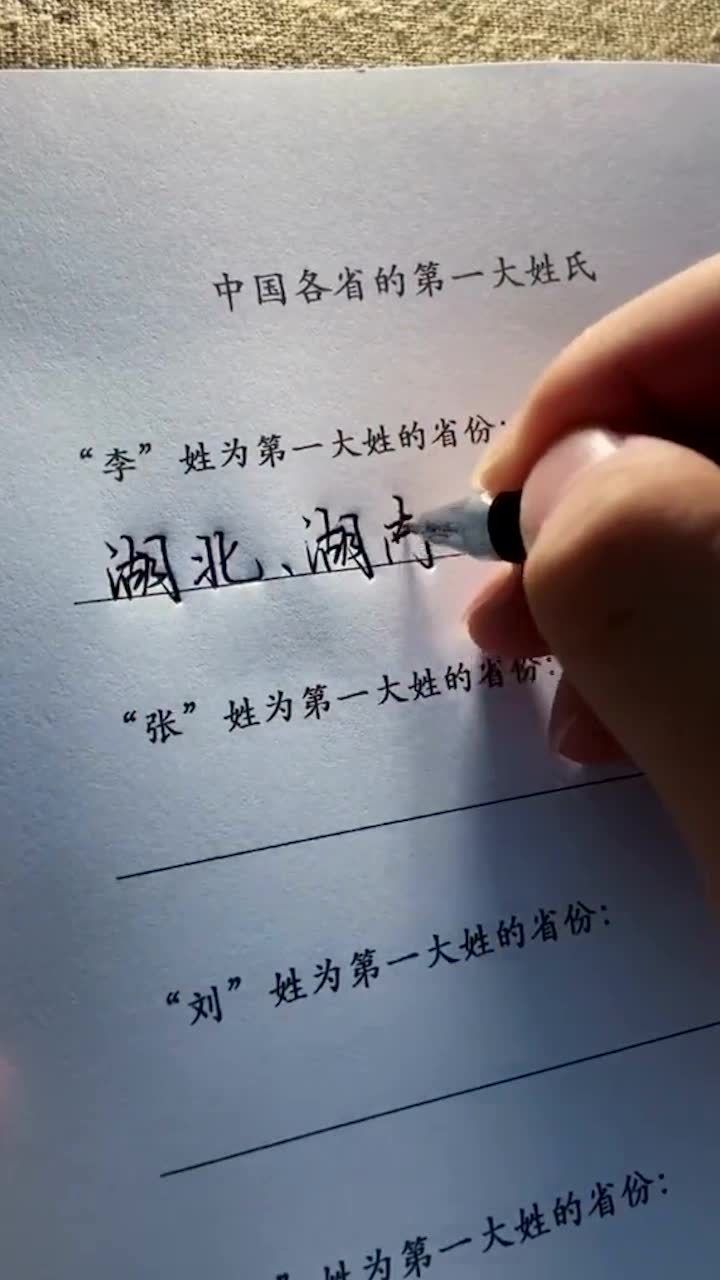 中国各省的第一大姓氏
“李”姓为第一大姓的省份:
湖北、湖南
“张”姓为第一大姓的省份:
“刘”姓为第一大姓的省份:
”姓为第一大姓的省份: